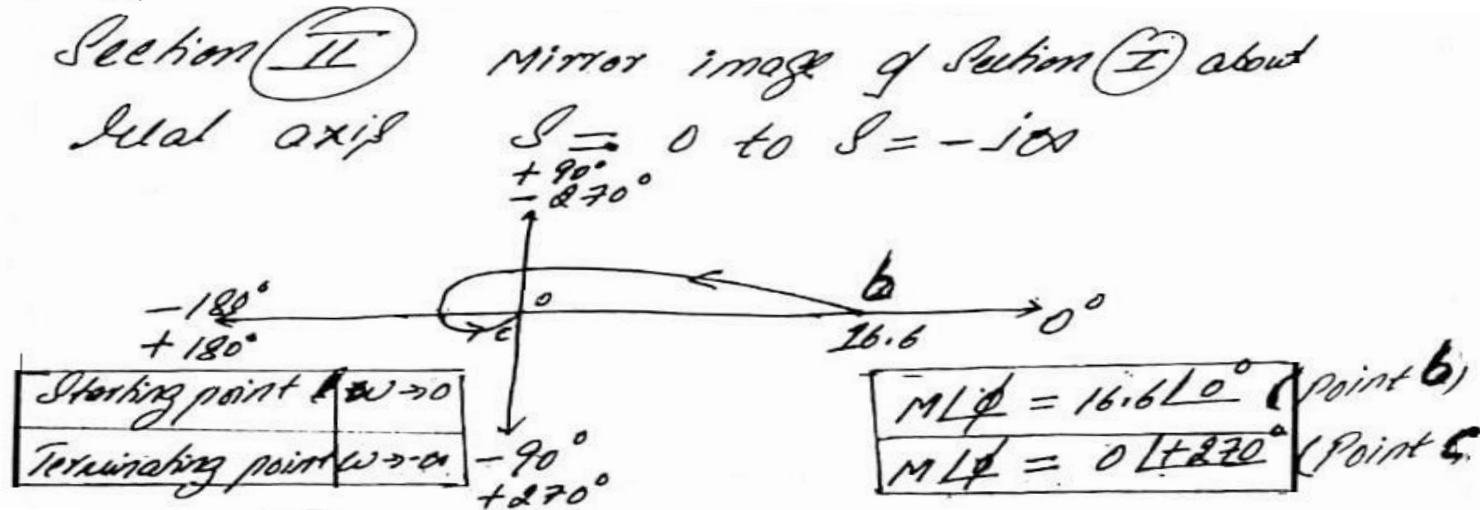 Section II Mirror image of Section I about
real axis S = 0 to S = -j∞
+90°
-270°
b
0
-180°
+180°
c
16.6
0°
Starting point ω→0
Terminating point ω→-∞
-90°
+270°
M∠φ = 16.6∠0° (Point b)
M∠φ = 0∠+270° (Point C)